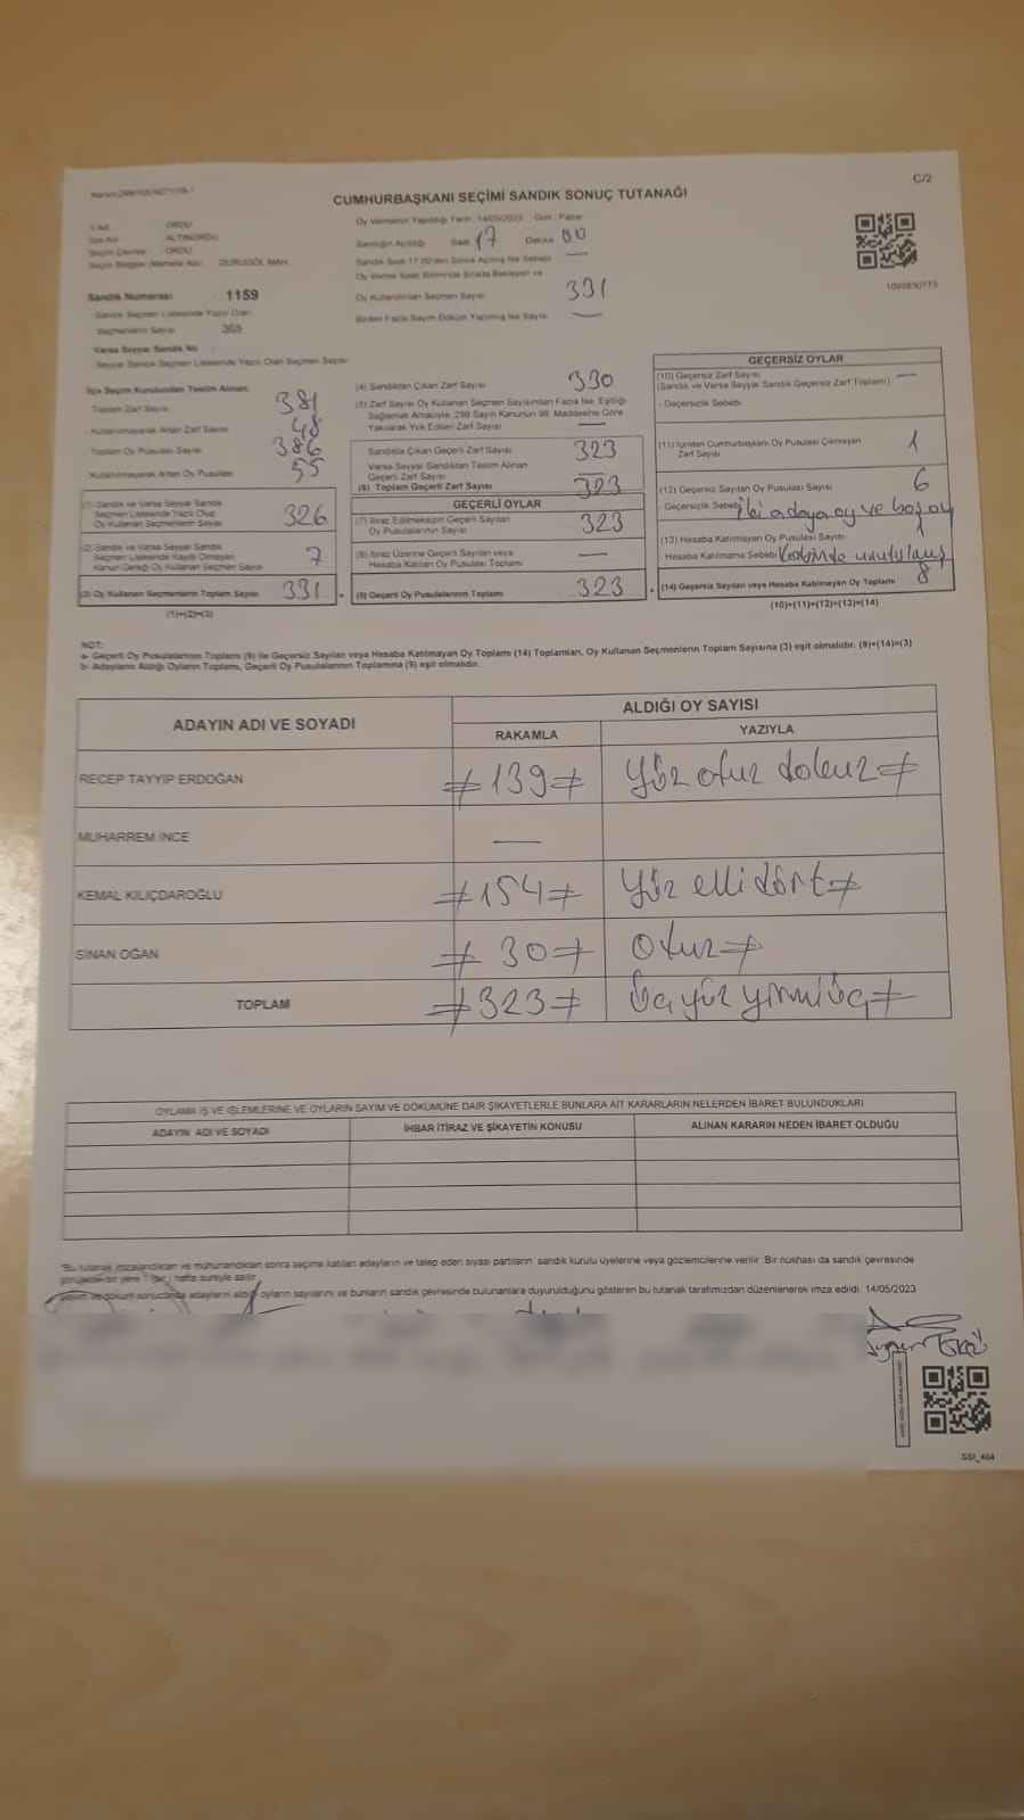 C/2
CUMHURBAŞKANI SEÇİMİ SANDIK SONUÇ TUTANAĞI
Oy Vermenin Yapıldığı Tarih: 14/05/2023 Gün: Pazar
ORDU
ALTINORDU
ORDU
Sandığın Açıldığı Saat 17 Dakika 00
Oy Kullandırılan Seçmen Sayısı 331
Sandık Numarası 1159
Sandık Seçmen Listesinde Yazılı Olan
Seçmenlerin Sayısı 365
Varsa Seyyar Sandık No
Seyyar Sandık Seçmen Listesinde Yazılı Olan Seçmen Sayısı
İlçe Seçim Kurulundan Teslim Alınan
Toplam Zarf Sayısı 381
Kullanılmayarak Artan Zarf Sayısı 48
Toplam Oy Pusulası Sayısı 386
Kullanılmayarak Artan Oy Pusulası 55
(1) Sandık ve Varsa Seyyar Sandık
Seçmen Listesinde Yazılı Olup
Oy Kullanan Seçmenlerin Sayısı 326
(2) Sandık ve Varsa Seyyar Sandık
Seçmen Listesinde Kayıtlı Olmayan
Kanun Gereği Oy Kullanan Seçmen Sayısı 7
(3) Oy Kullanan Seçmenlerin Toplam Sayısı 331
(1)+(2)=(3)
(4) Sandıktan Çıkan Zarf Sayısı 330
(5) Zarf Sayısı Oy Kullanan Seçmen Sayısından Fazla İse, Eşitliği
Sağlamak Amacıyla, 298 Sayılı Kanunun 98. Maddesine Göre
Yakılarak Yok Edilen Zarf Sayısı —
Sandıkta Çıkan Geçerli Zarf Sayısı 323
Varsa Seyyar Sandıktan Teslim Alınan
Geçerli Zarf Sayısı —
(6) Toplam Geçerli Zarf Sayısı 323
GEÇERLİ OYLAR
(7) İtiraz Edilmeksizin Geçerli Sayılan
Oy Pusulalarının Sayısı 323
(8) İtiraz Üzerine Geçerli Sayılan veya
Hesaba Katılan Oy Pusulası Toplamı —
(9) Geçerli Oy Pusulalarının Toplamı 323
GEÇERSİZ OYLAR
(10) Geçersiz Zarf Sayısı —
(Sandık ve Varsa Seyyar Sandık Geçersiz Zarf Toplamı)
Geçersizlik Sebebi
(11) İçinden Cumhurbaşkanı Oy Pusulası Çıkmayan
Zarf Sayısı 1
(12) Geçersiz Sayılan Oy Pusulası Sayısı 6
Geçersizlik Sebebi İki adaya oy ve boş oy
(13) Hesaba Katılmayan Oy Pusulası Sayısı 1
Hesaba Katılmama Sebebi kabinde unutulmuş
(14) Geçersiz Sayılan veya Hesaba Katılmayan Oy Toplamı 8
(10)+(11)+(12)+(13)=(14)
NOT:
a- Geçerli Oy Pusulalarının Toplamı (9) ile Geçersiz Sayılan veya Hesaba Katılmayan Oy Toplamı (14) Toplamları, Oy Kullanan Seçmenlerin Toplam Sayısına (3) eşit olmalıdır. (9)+(14)=(3)
b- Adayların Aldığı Oyların Toplamı, Geçerli Oy Pusulalarının Toplamına (9) eşit olmalıdır.
ADAYIN ADI VE SOYADI
ALDIĞI OY SAYISI
RAKAMLA YAZIYLA
RECEP TAYYİP ERDOĞAN ≠139≠ Yüz otuz dokuz≠
MUHARREM İNCE —
KEMAL KILIÇDAROĞLU ≠154≠ Yüz elli dört≠
SİNAN OĞAN ≠30≠ Otuz≠
TOPLAM ≠323≠ üç yüz yirmi üç≠
OYLAMA İŞ VE İŞLEMLERİNE VE OYLARIN SAYIM VE DÖKÜMÜNE DAİR ŞİKAYETLERLE BUNLARA AİT KARARLARIN NELERDEN İBARET BULUNDUKLARI
ADAYIN ADI VE SOYADI İHBAR İTİRAZ VE ŞİKAYETİN KONUSU ALINAN KARARIN NEDEN İBARET OLDUĞU
Bu tutanak imzalandıktan ve mühürlendikten sonra seçime katılan adayların ve talep eden siyasi partilerin sandık kurulu üyelerine veya gözlemcilerine verilir. Bir nüshası da sandık çevresinde
oyların sayılarını ve bunların sandık çevresinde bulunanlara duyurulduğunu gösteren bu tutanak tarafımızdan düzenlenerek imza edildi. 14/05/2023